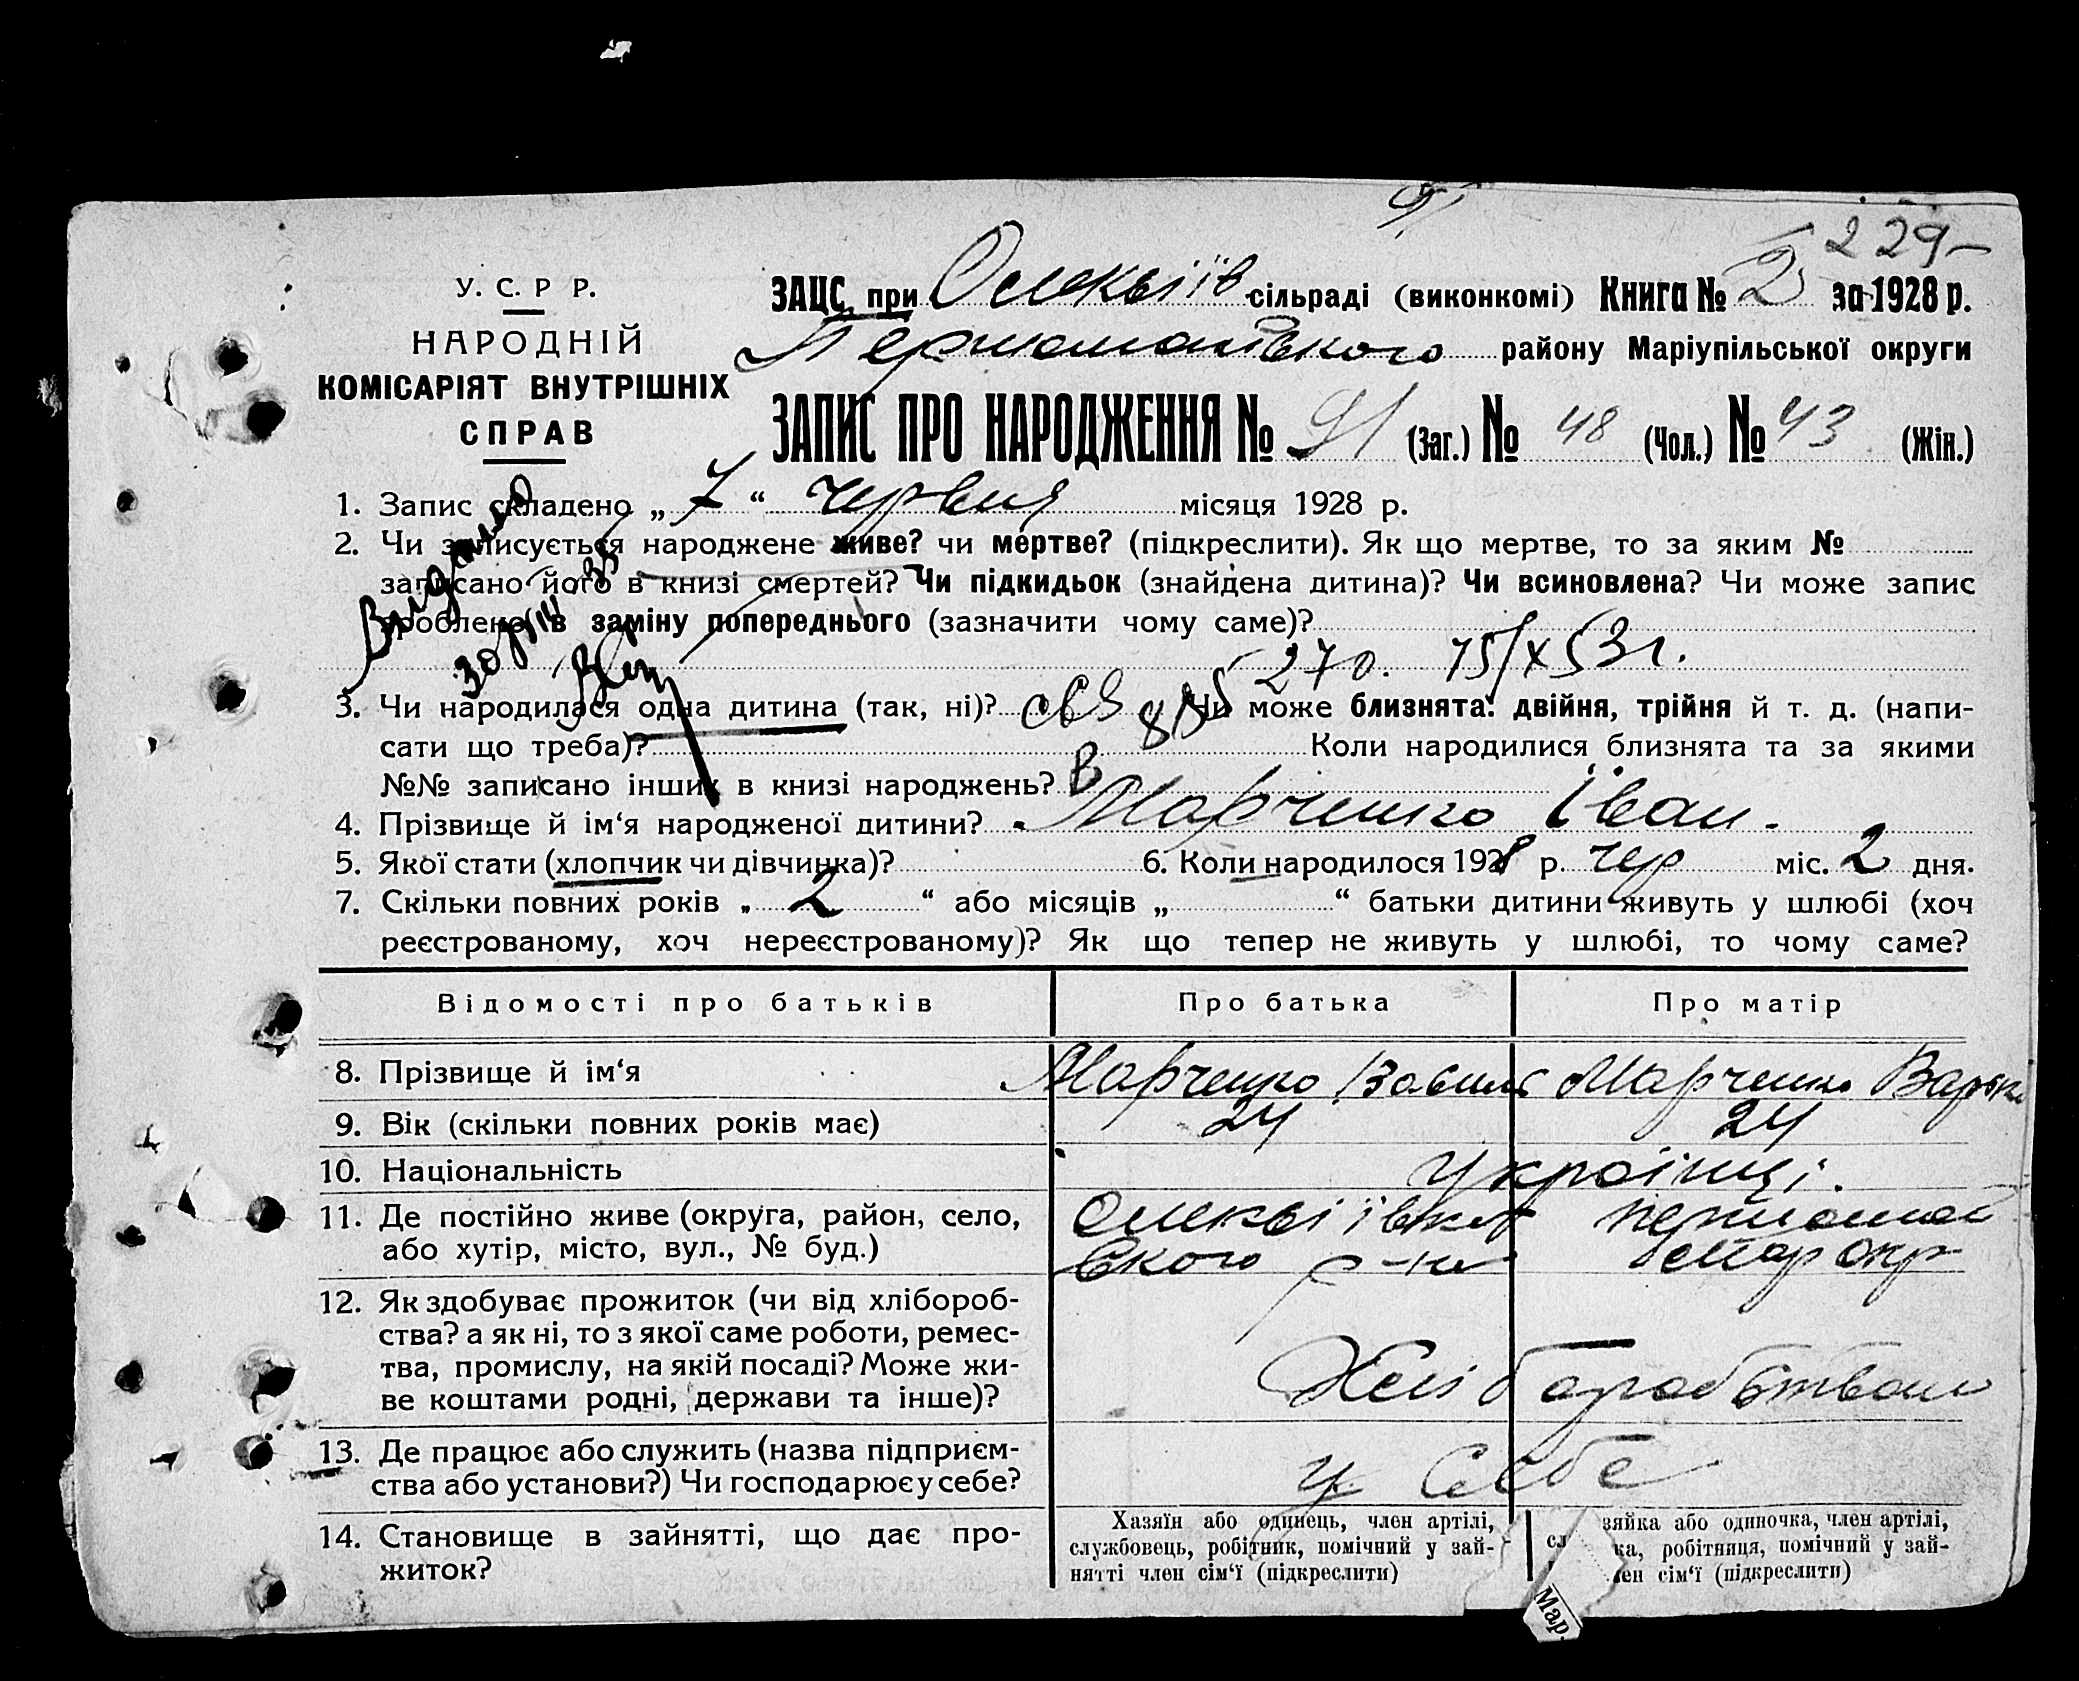 229-
У. С. Р Р.
НАРОДНІЙ
КОМІСАРІЯТ ВНУТРІШНІХ
СПРАВ
ЗАЦС при Олексіїв сільраді (виконкомі) Книга № 2 за 1928 р.
Першомайського району Маріупільської округи
ЗАПИС ПРО НАРОДЖЕННЯ № 91 (Заг.) № 48 (Чол.) № 43 (Жін.)
1. Запис складено „ 7 “ червня місяця 1928 р.
2. Чи записується народжене живе? чи мертве? (підкреслити). Як що мертве, то за яким №
записано його в книзі смертей? Чи підкидьок (знайдена дитина)? Чи всиновлена? Чи може запис
зроблено в заміну попереднього (зазначити чому саме)?
Видано
270. 15/X 53г.
3. Чи народилася одна дитина (так, ні)? Чи може близнята: двійня, трійня й т. д. (напи-
сати що треба)? Коли народилися близнята та за якими
№№ записано інших в книзі народжень?
4. Прізвище й ім‘я народженої дитини? Марченко Іван.
5. Якої стати (хлопчик чи дівчинка)? 6. Коли народилося 1928 р. чер міс. 2 дня.
7. Скільки повних років „ 2 “ або місяців „ “ батьки дитини живуть у шлюбі (хоч
реєстрованому, хоч нереєстрованому)? Як що тепер не живуть у шлюбі, то чому саме?
Відомості про батьків Про батька Про матір
8. Прізвище й ім‘я Марченко Василь Марченко Варька
9. Вік (скільки повних років має) 24 24
10. Національність Українці.
11. Де постійно живе (округа, район, село,
або хутір, місто, вул., № буд.)
Першомай
вського р-ну Мар окр
12. Як здобуває прожиток (чи від хлібороб-
ства? а як ні, то з якої саме роботи, ремес-
тва, промислу, на якій посаді? Може жи-
ве коштами родні, держави та інше)?
Хліборобством
13. Де працює або служить (назва підприєм-
ства або установи?) Чи господарює у себе?
у себе
14. Становище в зайнятті, що дає про-
житок?
Хазяїн або одинець, член артілі,
службовець, робітник, помічний у зай-
нятті член сім‘ї (підкреслити)
зяйка або одиночка, член артілі,
ка, робітниця, помічний у зай-
лен сім‘ї (підкреслити)
Мар.